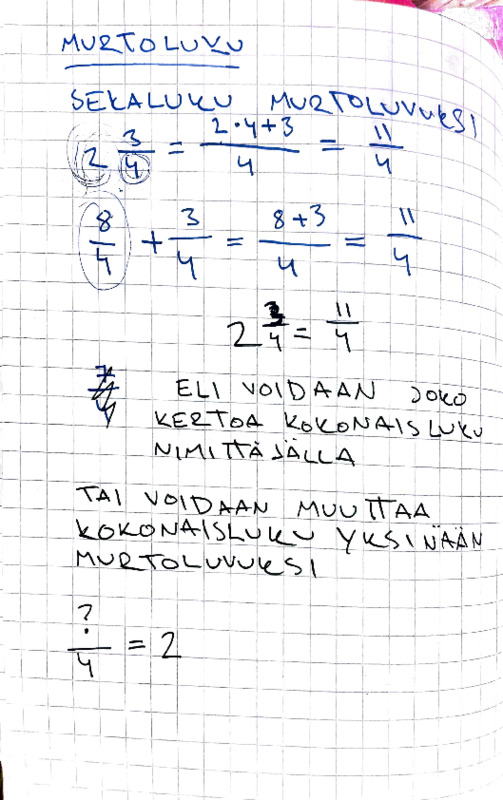 MURTOLUKU
SEKALUKU MURTOLUVUKSI
2 3/4 = (2·4+3)/4 = 11/4
8/4 + 3/4 = (8+3)/4 = 11/4
2 3/4 = 11/4
ELI VOIDAAN JOKO
KERTOA KOKONAISLUKU
NIMITTÄJÄLLÄ
TAI VOIDAAN MUUTTAA
KOKONAISLUKU YKSINÄÄN
MURTOLUVUKSI
?/4 = 2